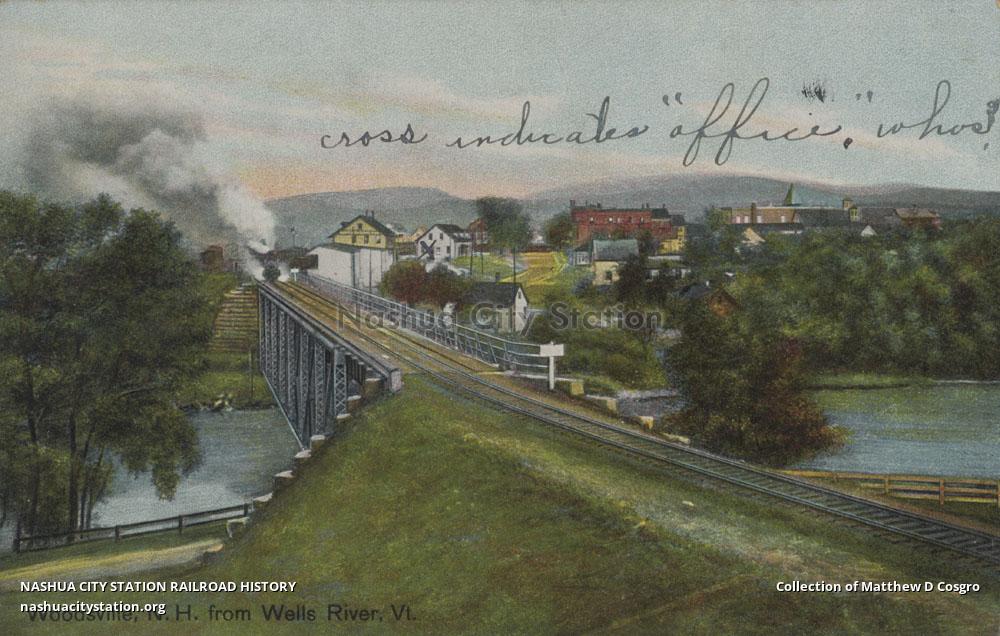 cross indicates "office", whos?
Nashua City Station
NASHUA CITY STATION RAILROAD HISTORY
nashuacitystation.org
Collection of Matthew D Cosgro
Woodsville, N. H. from Wells River, Vt.